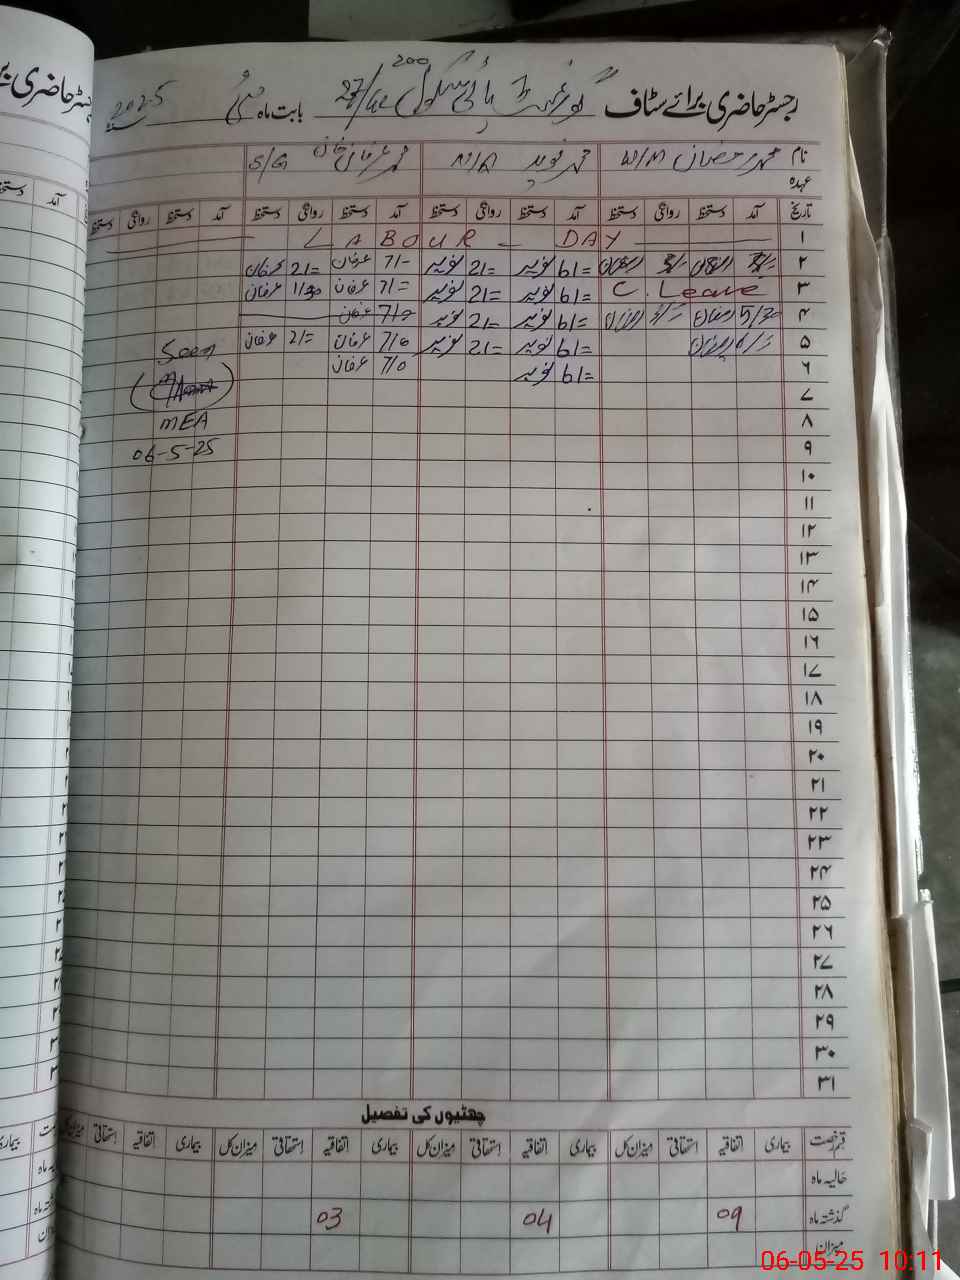 رجسٹر حاضری برائے سٹاف گورنمنٹ ہائی سکول 200 بابت ماہ مئی 2025
نام محمد رمضان محمد نوید N/Q محمد عرفان خان S/G
عہدہ
تاریخ آمد دستخط روانگی دستخط آمد دستخط روانگی دستخط آمد دستخط روانگی دستخط آمد دستخط روانگی دستخط
۱ LABOUR - DAY
۲ 61= نوید 21= نوید 71= عرفان 21= عرفان
۳ C. Leave 61= نوید 21= نوید 71= عرفان 1/30 عرفان
۴ 5/30 رمضان 61= نوید 21= نوید عرفان
۵ رمضان 61= نوید 21= نوید 7/0 عرفان 21= عرفان Seen
۶ 61= نوید 7/0 عرفان
۷
۸ MEA
۹ 06-5-25
۱۰
۱۱
۱۲
۱۳
۱۴
۱۵
۱۶
۱۷
۱۸
۱۹
۲۰
۲۱
۲۲
۲۳
۲۴
۲۵
۲۶
۲۷
۲۸
۲۹
۳۰
۳۱
چھٹیوں کی تفصیل
قسم رخصت بیماری اتفاقیہ استحقاقی میزان کل بیماری اتفاقیہ استحقاقی میزان کل بیماری اتفاقیہ استحقاقی میزان کل بیماری اتفاقیہ استحقاقی میزان کل
حالیہ ماہ
گذشتہ ماہ 09 04 03
میزان
06-05-25 10:11